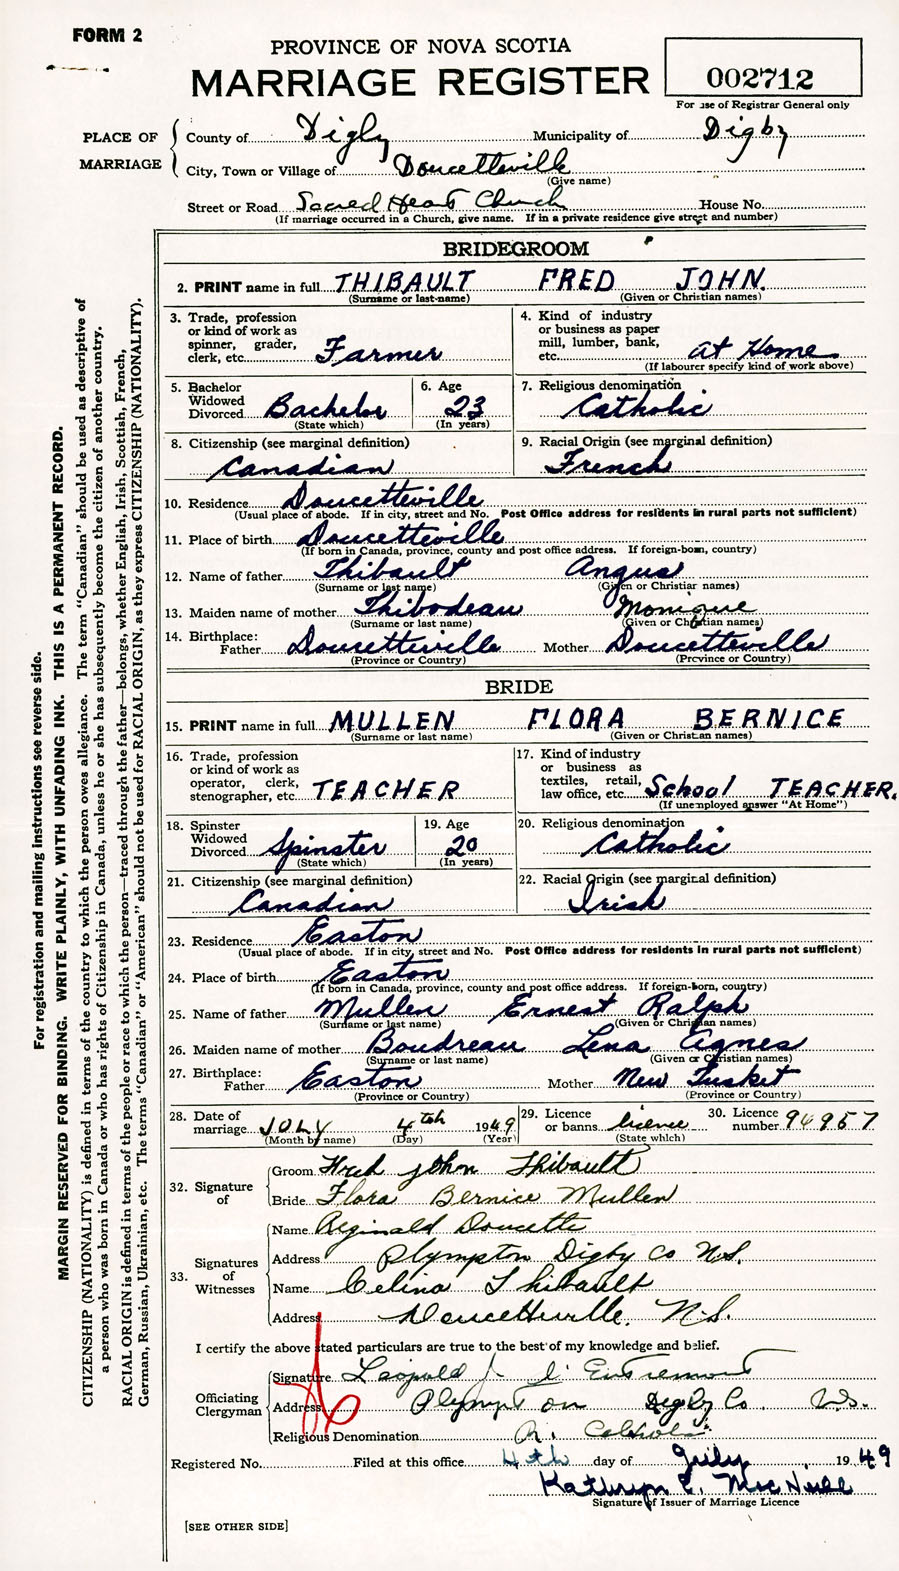 FORM 2
PROVINCE OF NOVA SCOTIA
MARRIAGE REGISTER
002712
For use of Registrar General only
PLACE OF MARRIAGE
County of Digby Municipality of Digby
City, Town or Village of Doucetteville
(Give name)
Street or Road Sacred Heart Church House No.
(If marriage occurred in a Church, give name. If in a private residence give street and number)
BRIDEGROOM
2. PRINT name in full THIBAULT FRED JOHN.
(Surname or last name) (Given or Christian names)
3. Trade, profession or kind of work as spinner, grader, clerk, etc. Farmer
4. Kind of industry or business as paper mill, lumber, bank, etc. at Home
(If labourer specify kind of work above)
5. Bachelor Widowed Divorced Bachelor
(State which)
6. Age 23
(In years)
7. Religious denomination Catholic
8. Citizenship (see marginal definition)
Canadian
9. Racial Origin (see marginal definition)
French
10. Residence Doucetteville
(Usual place of abode. If in city, street and No. Post Office address for residents in rural parts not sufficient)
11. Place of birth Doucetteville
(If born in Canada, province, county and post office address. If foreign-born, country)
12. Name of father Thibault Angus
(Surname or last name) (Given or Christian names)
13. Maiden name of mother Thibodeau Monique
(Surname or last name) (Given or Christian names)
14. Birthplace:
Father Doucetteville Mother Doucetteville
(Province or Country) (Province or Country)
BRIDE
15. PRINT name in full MULLEN FLORA BERNICE
(Surname or last name) (Given or Christian names)
16. Trade, profession or kind of work as operator, clerk, stenographer, etc. TEACHER
17. Kind of industry or business as textiles, retail, law office, etc. School TEACHER.
(If unemployed answer "At Home")
18. Spinster Widowed Divorced Spinster
(State which)
19. Age 20
(In years)
20. Religious denomination
Catholic
21. Citizenship (see marginal definition)
Canadian
22. Racial Origin (see marginal definition)
Irish
23. Residence Easton
(Usual place of abode. If in city, street and No. Post Office address for residents in rural parts not sufficient)
24. Place of birth Easton
(If born in Canada, province, county and post office address. If foreign-born, country)
25. Name of father Mullen Ernest Ralph
(Surname or last name) (Given or Christian names)
26. Maiden name of mother Boudreau Lena Agnes
(Surname or last name) (Given or Christian names)
27. Birthplace:
Father Easton Mother New Tusket
(Province or Country) (Province or Country)
28. Date of marriage JULY 4th 1949
(Month by name) (Day) (Year)
29. Licence or banns licence
(State which)
30. Licence number 94957
32. Signature of
Groom Fred John Thibault
Bride Flora Bernice Mullen
33. Signatures of Witnesses
Name Reginald Doucette
Address Plympton Digby Co N.S.
Name Celina Thibault
Address Doucetteville, N.S.
I certify the above stated particulars are true to the best of my knowledge and belief.
Officiating Clergyman
Signature Leopold J. d'Entremont
Address Plympton Digby Co. N.S.
Religious Denomination R. Catholic
Registered No. Filed at this office 4th day of July 1949
Kathryn E. MacNeill
Signature of Issuer of Marriage Licence
[SEE OTHER SIDE]
For registration and mailing instructions see reverse side.
MARGIN RESERVED FOR BINDING. WRITE PLAINLY, WITH UNFADING INK. THIS IS A PERMANENT RECORD.
CITIZENSHIP (NATIONALITY) is defined in terms of the country to which the person owes allegiance. The term "Canadian" should be used as descriptive of
a person who was born in Canada or who has rights of Citizenship in Canada, unless he or she has subsequently become the citizen of another country.
RACIAL ORIGIN is defined in terms of the people or race to which the person—traced through the father—belongs, whether English, Irish, Scottish, French,
German, Russian, Ukrainian, etc. The terms "Canadian" or "American" should not be used for RACIAL ORIGIN, as they express CITIZENSHIP (NATIONALITY).